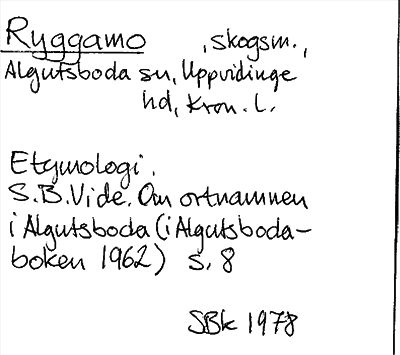 Ryggamo , skogsm.,
Algutsboda sn, Uppvidinge
hd, Kron. l.
Etymologi.
S.B.Vide. Om ortnamnen
i Algutsboda (i Algutsboda-
boken 1962) s. 8
SBk 1978